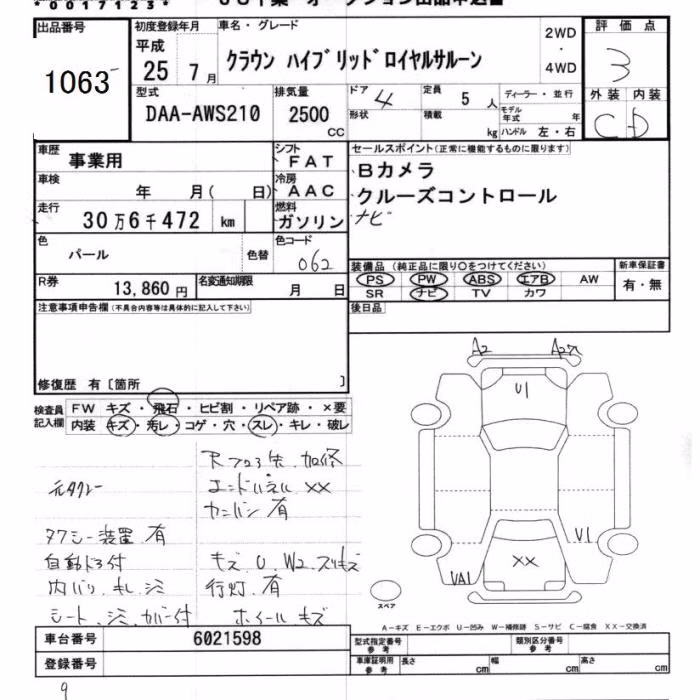 *0017123*
出品番号
1063
初度登録年月
平成
25 年 7 月
車名・グレード
クラウン ハイブリッドロイヤルサルーン
2WD
・
4WD
評価点
3
外装 内装
C D
型式
DAA-AWS210
排気量
2500
CC
ドア 4
形状
定員 5 人
積載 kg
ディーラー・並行
モデル年式 年
ハンドル 左・右
車歴 事業用
シフト FAT
車検 年 月( 日)
冷房 AAC
走行 30万6千472 km
燃料 ガソリン
セールスポイント(正常に機能するものに限ります)
Bカメラ
クルーズコントロール
ナビ
色 パール
色替
色コード 062
装備品(純正品に限り○をつけてください)
PS PW ABS エアB AW
SR ナビ TV カワ
新車保証書
有・無
R券 13,860 円
名変通知期限 月 日
後日品
注意事項申告欄(不具合内容等は具体的に記入して下さい)
修復歴 有〔箇所 〕
検査員記入欄
FW キズ・飛石・ヒビ割・リペア跡・×要
内装 キズ・汚レ・コゲ・穴・スレ・キレ・破レ
元タクシー
タクシー装置 有
自動ドア付
内バリ キレ シミ
シート シミ カバー付
エンドパネル ××
カンバン 有
キズ U W2 スリキズ
行灯 有
ホイールキズ
A2
U1
U1
××
VA1
スペア
A-キズ E-エクボ U-凹み W-補修跡 S-サビ C-腐食 XX-交換済
車台番号 6021598
登録番号
型式指定番号 参考
類別区分番号 参考
車庫証明用 参考
長さ cm
幅 cm
高さ cm
9